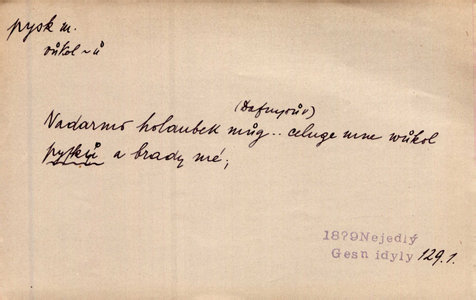 pysk m.
vůkol ~ů
(Dafnysův)
Nadarmo holaubek můg.. celuge mne wůkol
pysků a brady mé,
18?9Nejedlý
Gesn idyly 129.1.